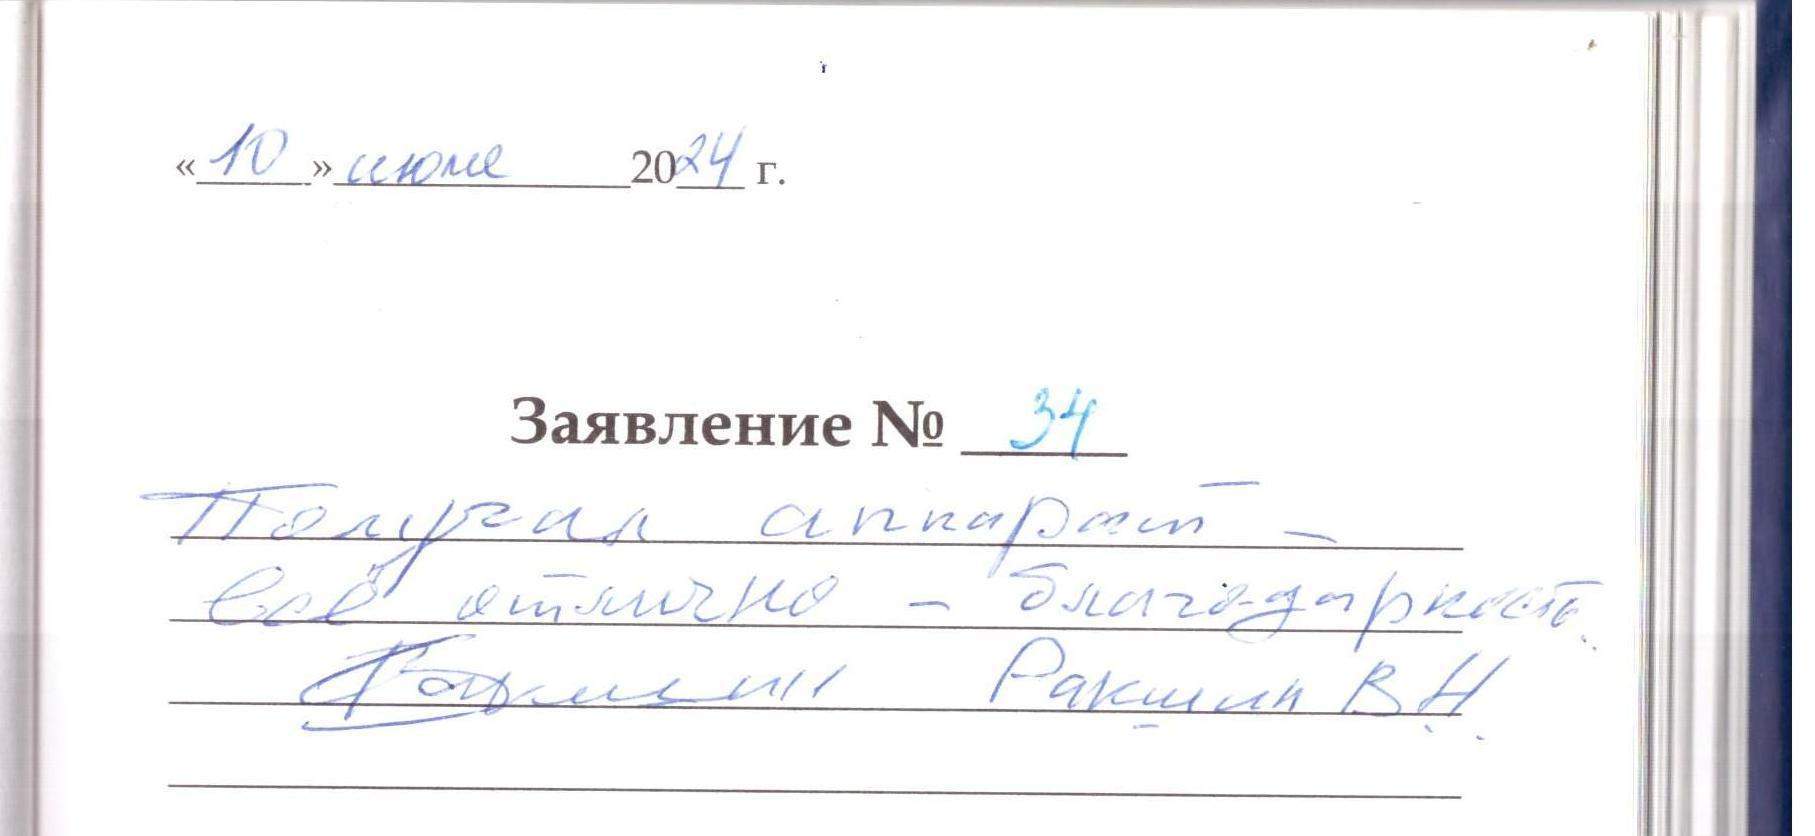 «10» июня 2024 г.
Заявление № 34
Получал аппарат –
всё отлично – благодарность.
Ракшин В.Н.